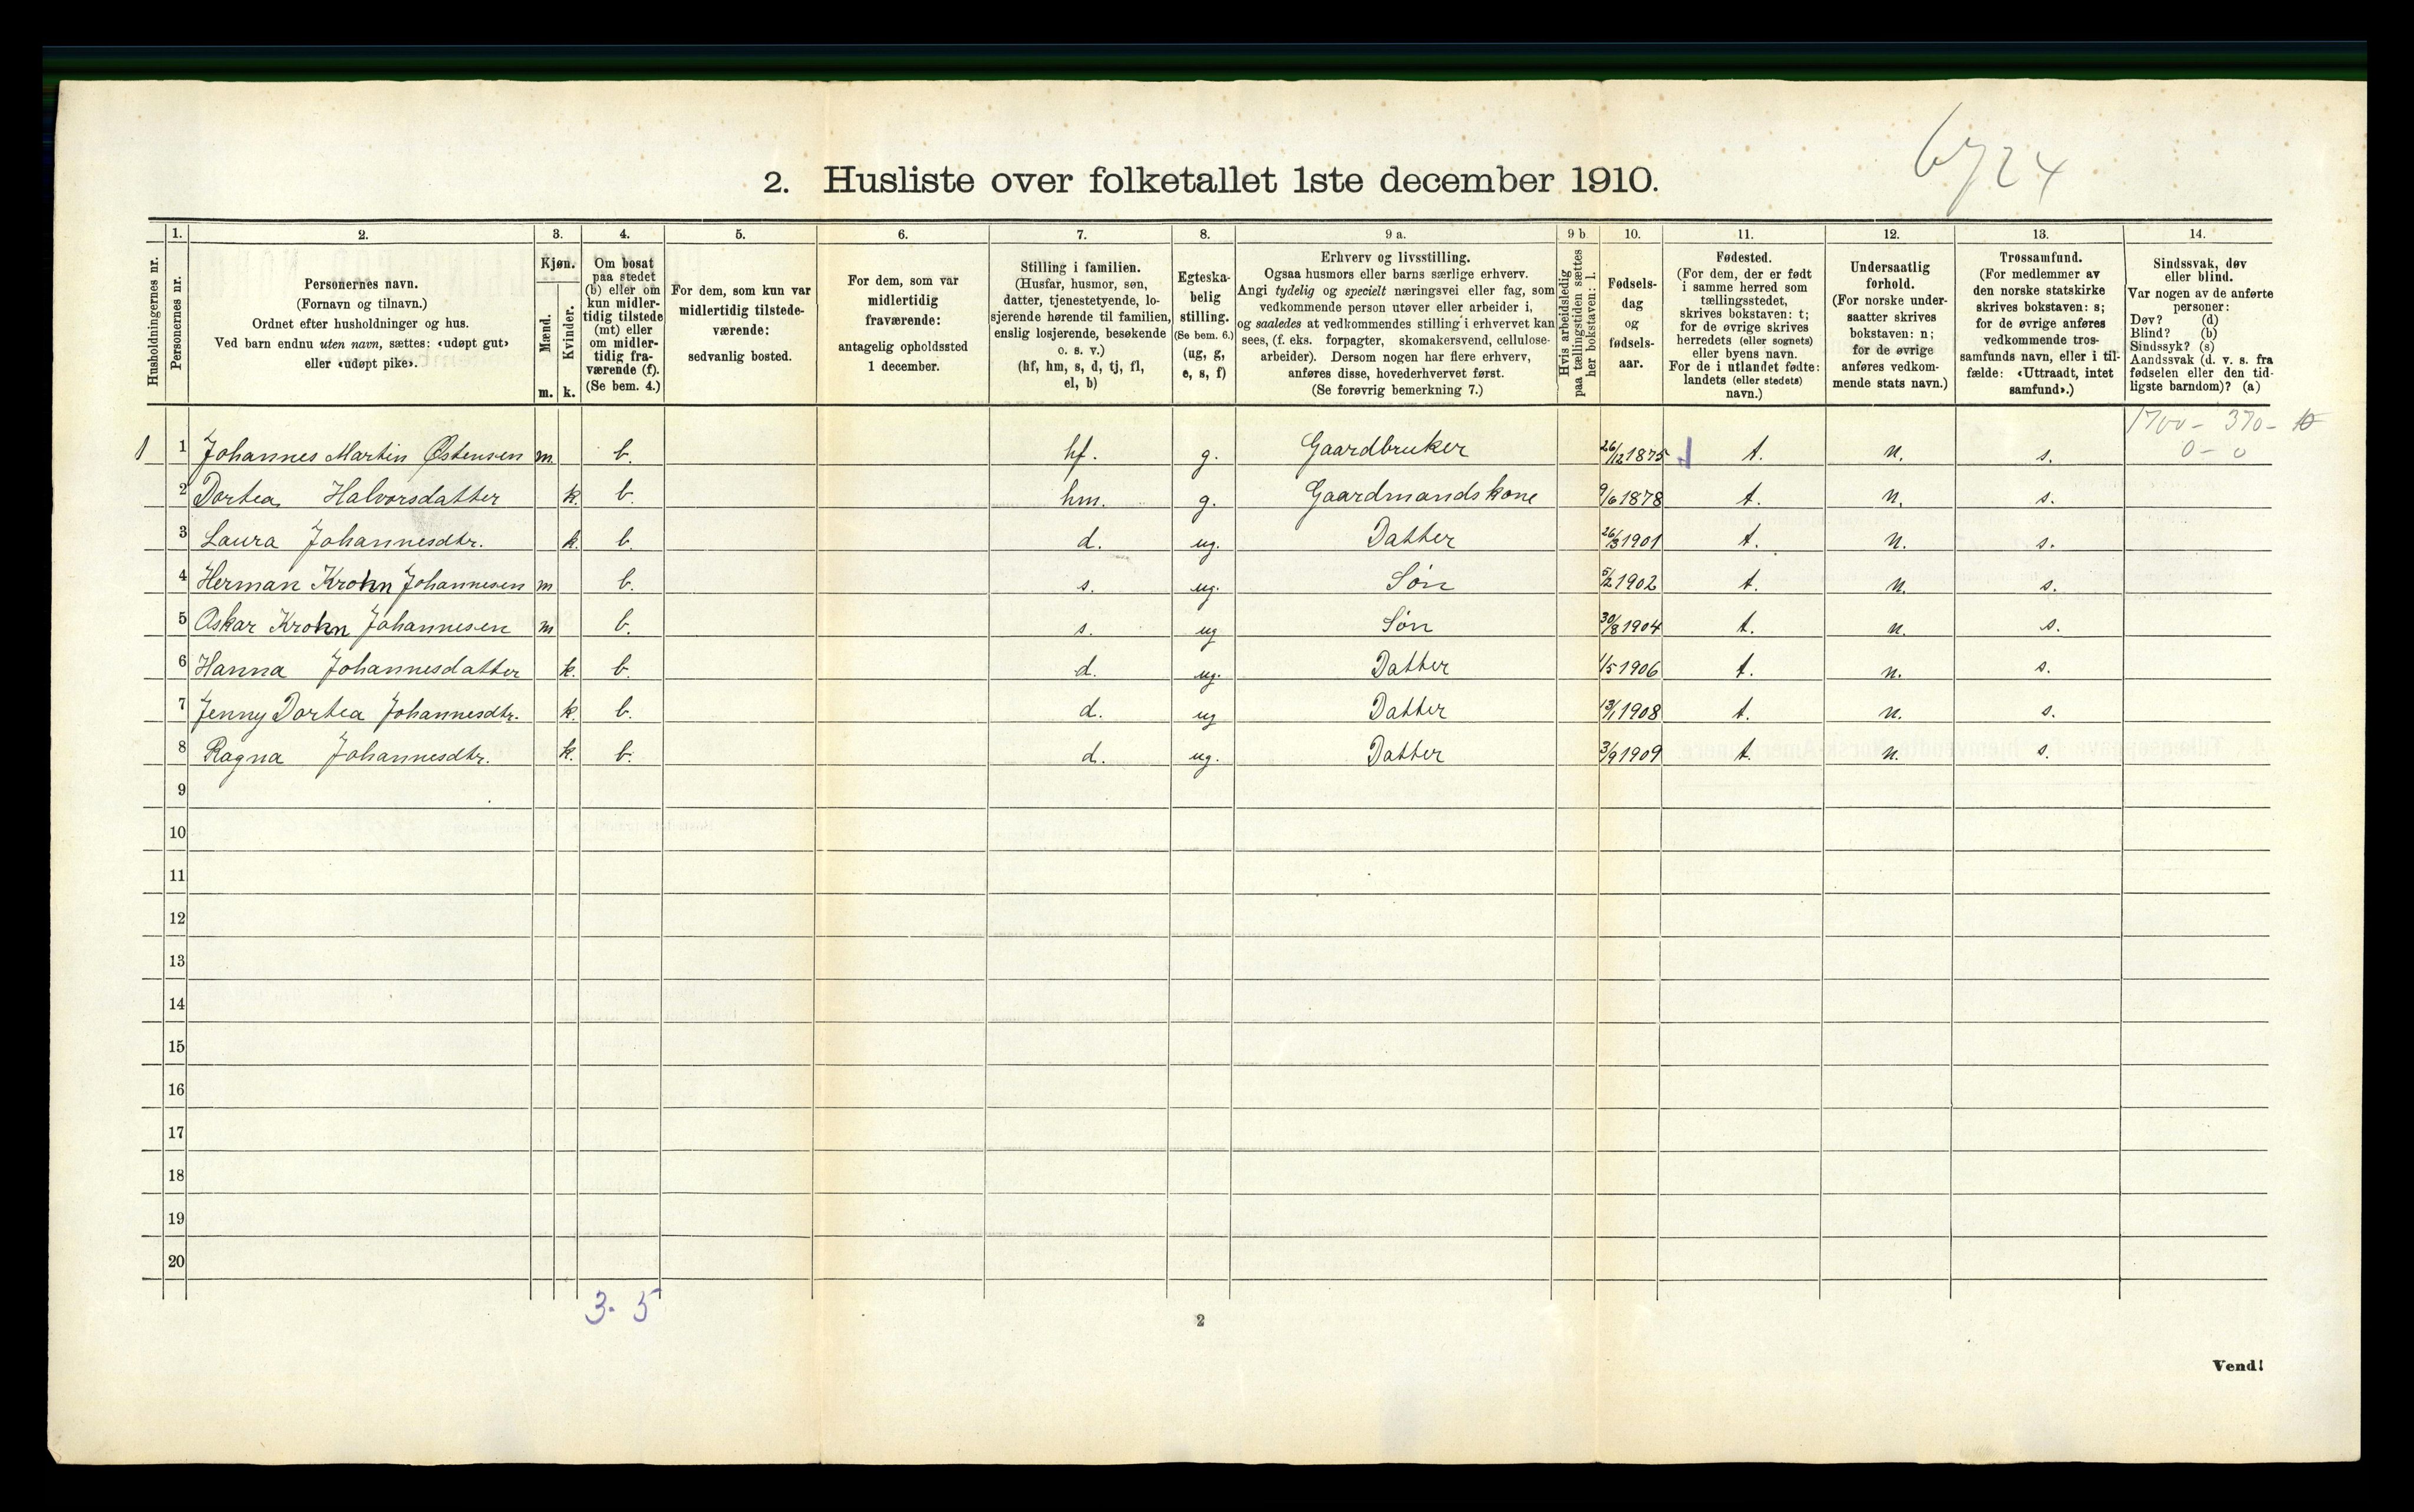 6724
2. Husliste over folketallet 1ste december 1910.
1. 2. 3. 4. 5. 6. 7. 8. 9 a. 9 b 10. 11. 12. 13. 14.
Husholdningernes nr.
Personernes nr.
Personernes navn.
(Fornavn og tilnavn.)
Ordnet efter husholdninger og hus.
Ved barn endnu uten navn, sættes: «udøpt gut»
eller «udøpt pike».
Kjøn.
Mænd.
Kvinder.
m. k.
Om bosat
paa stedet
(b) eller om
kun midler-
tidig tilstede
(mt) eller
om midler-
tidig fra-
værende (f).
(Se bem. 4.)
For dem, som kun var
midlertidig tilstede-
værende:
sedvanlig bosted.
For dem, som var
midlertidig
fraværende:
antagelig opholdssted
1 december.
Stilling i familien.
(Husfar, husmor, søn,
datter, tjenestetyende, lo-
sjerende hørende til familien,
enslig losjerende, besøkende
o. s. v.)
(hf, hm, s, d, tj, fl,
el, b)
Egteska-
belig
stilling.
(Se bem. 6.)
(ug, g,
e, s, f)
Erhverv og livsstilling.
Ogsaa husmors eller barns særlige erhverv.
Angi tydelig og specielt næringsvei eller fag, som
vedkommende person utøver eller arbeider i,
og saaledes at vedkommendes stilling i erhvervet kan
sees, (f. eks. forpagter, skomakersvend, cellulose-
arbeider). Dersom nogen har flere erhverv,
anføres disse, hovederhvervet først.
(Se forøvrig bemerkning 7.)
Hvis arbeidsledig
paa tællingstiden sættes
her bokstaven: l.
Fødsels-
dag
og
fødsels-
aar.
Fødested.
(For dem, der er født
i samme herred som
tællingsstedet,
skrives bokstaven: t;
for de øvrige skrives
herredets (eller sognets)
eller byens navn.
For de i utlandet fødte:
landets (eller stedets)
navn.)
Undersaatlig
forhold.
(For norske under-
saatter skrives
bokstaven: n;
for de øvrige
anføres vedkom-
mende stats navn.)
Trossamfund.
(For medlemmer av
den norske statskirke
skrives bokstaven: s;
for de øvrige anføres
vedkommende tros-
samfunds navn, eller i til-
fælde: «Uttraadt, intet
samfund».)
Sindssvak, døv
eller blind.
Var nogen av de anførte
personer:
Døv? (d)
Blind? (b)
Sindssyk? (s)
Aandssvak (d. v. s. fra
fødselen eller den tid-
ligste barndom)? (a)
1700 - 370 -
0 - 0
1 1 Johannes Martin Østensen m. b. hf. g. Gaardbruker 26/12 1875 t. n. s.
2 Dortea Halvorsdatter k. b. hm. g. Gaardmandskone 9/6 1878 t. n. s.
3 Laura Johannesdtr. k. b. d. ug. Datter 26/3 1901 t. n. s.
4 Herman Krohn Johannesen m b. s. ug. Søn 5/2 1902 t. n. s.
5 Oskar Krohn Johannesen m b. s. ug Søn 30/8 1904 t. n. s.
6 Hanna Johannesdatter k. b. d. ug. Datter 1/5 1906 t. n. s.
7 Jenny Dortea Johannesdtr. k. b. d. ug Datter 13/1 1908 t. n. s.
8 Ragna Johannesdtr. k. b. d. ug. Datter 3/9 1909 t. n. s.
9
10
11
12
13
14
15
16
17
18
19
20
3. 5
2
Vend!